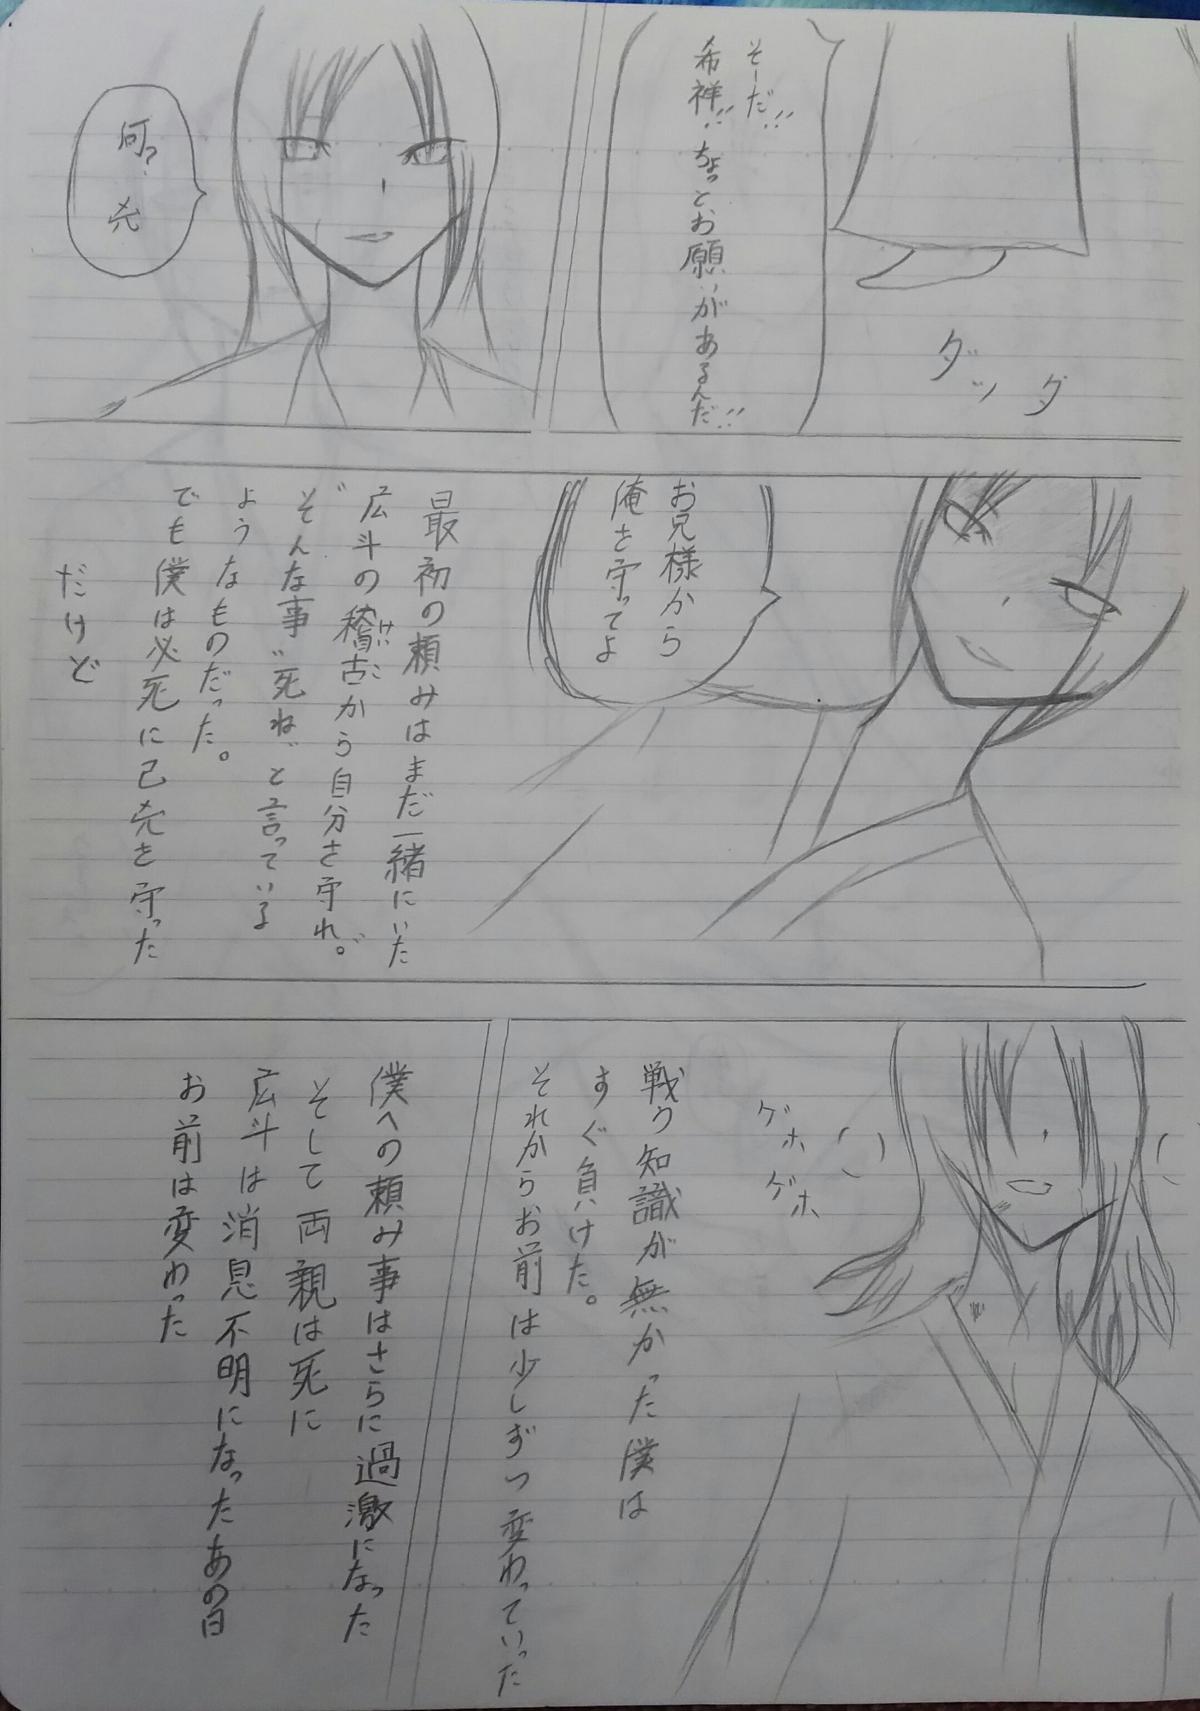 そーだ!!
希祥!! ちょっとお願いがあるんだ!!
ダッ ダ
何? 
お兄様から
俺を守ってよ
最初の頼みはまだ一緒にいた
広斗の稽古から自分を守れ。
けいこ
そんな事〝死ね〟と言っている
ようなものだった。
でも僕は必死に を守った
だけど
ゲホ
ゲホ
戦う知識が無かった僕は
すぐ負けた。
それからお前は少しずつ変わっていった
僕への頼み事はさらに過激になった
そして両親は死に
広斗は消息不明になったあの日
お前は変わった